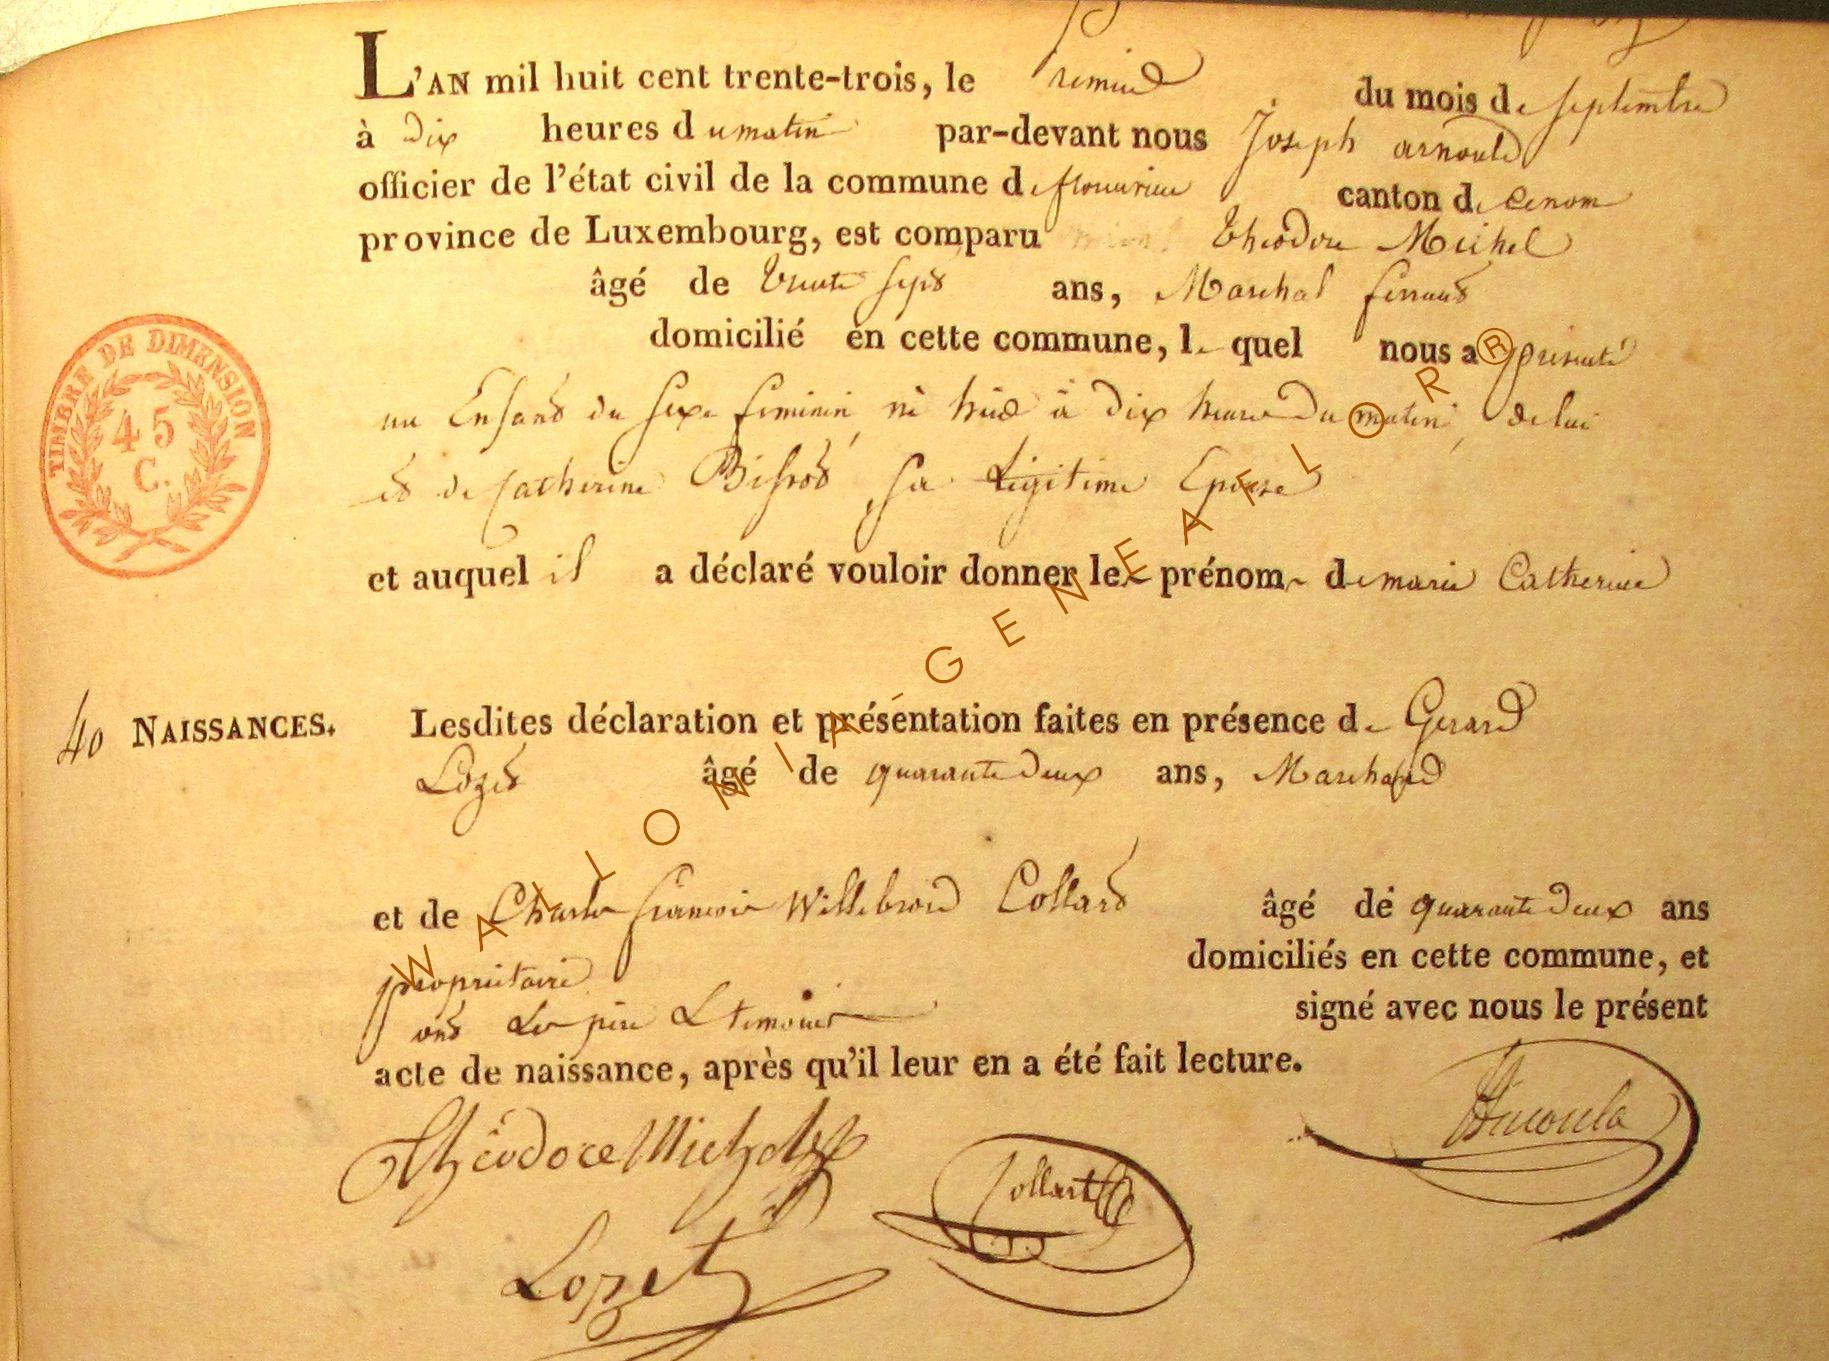 L'AN mil huit cent trente-trois, le premier du mois de septembre
à dix heures du matin par-devant nous Joseph arnould
officier de l'état civil de la commune de canton de
province de Luxembourg, est comparu Théodore Michel
âgé de trente sept ans, Marchal
domicilié en cette commune, le quel nous a présenté
un Enfant du sexe feminin né à dix heure du matin, de lui
et de Catherine sa Légitime Epouse
et auquel il a déclaré vouloir donner les prénoms de marie Catherine
40 NAISSANCES. Lesdites déclaration et présentation faites en présence de Gerard
Lozet âgé de quarante deux ans, Marchand
et de Charles françois Willebrord Collard âgé de quarante deux ans
domiciliés en cette commune, et
propriétaire
signé avec nous le présent
ont Le père & temoins
acte de naissance, après qu'il leur en a été fait lecture.
Théodore Michel
Collart
Lozet
TIMBRE DE DIMENSION
45
C.
WALLONIA-GENEAFLOR®